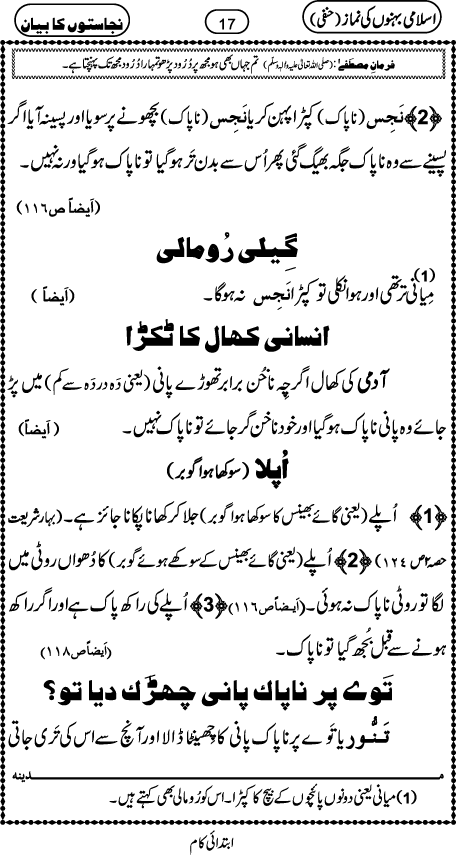 اسلامی بہنوں کی نماز (حنفی)
17
نجاستوں کا بیان
فرمانِ مصطفےٰ: (صلی اللہ تعالیٰ علیہ والہ وسلم) تم جہاں بھی ہو مجھ پر دُرُود پڑھو تمہارا دُرُود مجھ تک پہنچتا ہے۔
﴿2﴾ نَجِس (ناپاک) کپڑا پہن کر یا نَجِس (ناپاک) بچھونے پر سویا اور پسینہ آیا اگر
پسینے سے وہ ناپاک جگہ بھیگ گئی پھر اُس سے بدن تَر ہو گیا تو ناپاک ہو گیا ورنہ نہیں۔
(اَیضاً ص۱۱۶)
گِیلی رُومالی
مِیانی(1) تر تھی اور ہوا نکلی تو کپڑا نَجِس نہ ہوگا۔ (اَیضاً)
انسانی کھال کا ٹکڑا
آدمی کی کھال اگرچہ ناخُن برابر تھوڑے پانی (یعنی دَہ در دَہ سے کم) میں پڑ
جائے وہ پانی ناپاک ہو گیا اور خود ناخن گر جائے تو ناپاک نہیں۔ (اَیضاً)
اُپلا (سوکھا ہوا گوبر)
﴿1﴾ اُپلے (یعنی گائے بھینس کا سوکھا ہوا گوبر) جلا کر کھانا پکانا جائز ہے۔ (بہارِ شریعت
حصہ۲ ص ۱۲۴) ﴿2﴾ اُپلے (یعنی گائے بھینس کے سوکھے ہوئے گوبر) کا دُھواں روٹی میں
لگا تو روٹی ناپاک نہ ہوئی۔ (اَیضاً ص۱۱۶) ﴿3﴾ اُپلے کی راکھ پاک ہے اور اگر راکھ
ہونے سے قبل بُجھ گیا تو ناپاک۔ (اَیضاً ص۱۱۸)
تَوے پر ناپاک پانی چھڑک دیا تو؟
تَنُّور یا تَوے پر ناپاک پانی کا چھینٹا ڈالا اور آنچ سے اس کی تَری جاتی
مـدینہ
(1) میانی یعنی دونوں پائنچوں کے بیچ کا کپڑا۔ اس کو رُومالی بھی کہتے ہیں۔
ابتدائی کام